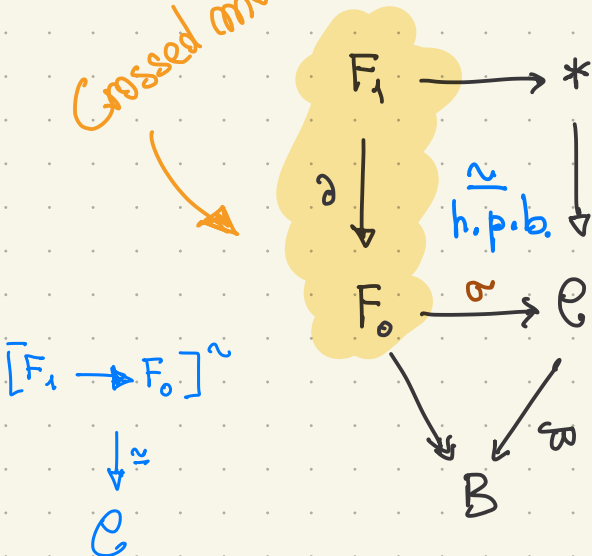 Crossed
F₁ → *
∂ ≃ h.p.b.
F₀ σ → C
[F₁ → F₀]~
≃ ϖ
B
C